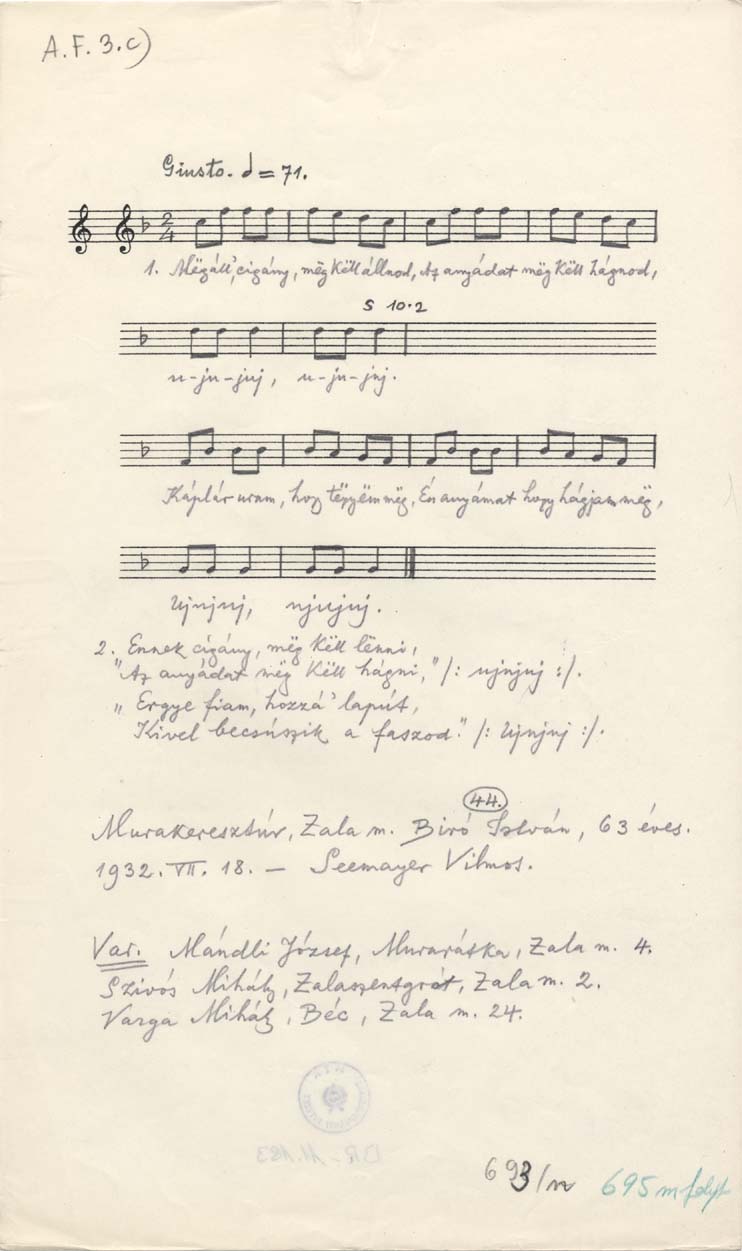 A. F. 3. c)
Giusto. 𝅗𝅥 = 71.
2/4
1. Mëgállˀ, cigány, mëg këll állnod, Az anyádat mëg këll hágnod,
S 10·2
u-ju-juj, u-ju-juj.
Káplár uram, hogy tëgyëm mëg, Én anyámat hogy hágjam mëg,
Ujujuj, ujujuj.
2. Ennek cigány, mëg këll lënni,
"Az anyádat mëg këll hágni," /: ujujuj :/.
„Ergye fiam, hozzáˀ lapút,
Kivel becsúszik a faszod." /: Ujujuj :/.
44.
Murakeresztúr, Zala m. Biró István, 63 éves.
1932. VII. 18. — Seemayer Vilmos.
Var. Mándli József, Murarátka, Zala m. 4.
Szivós Mihály, Zalaszentgrót, Zala m. 2.
Varga Mihály, Béc, Zala m. 24.
693/n 695 m folyt